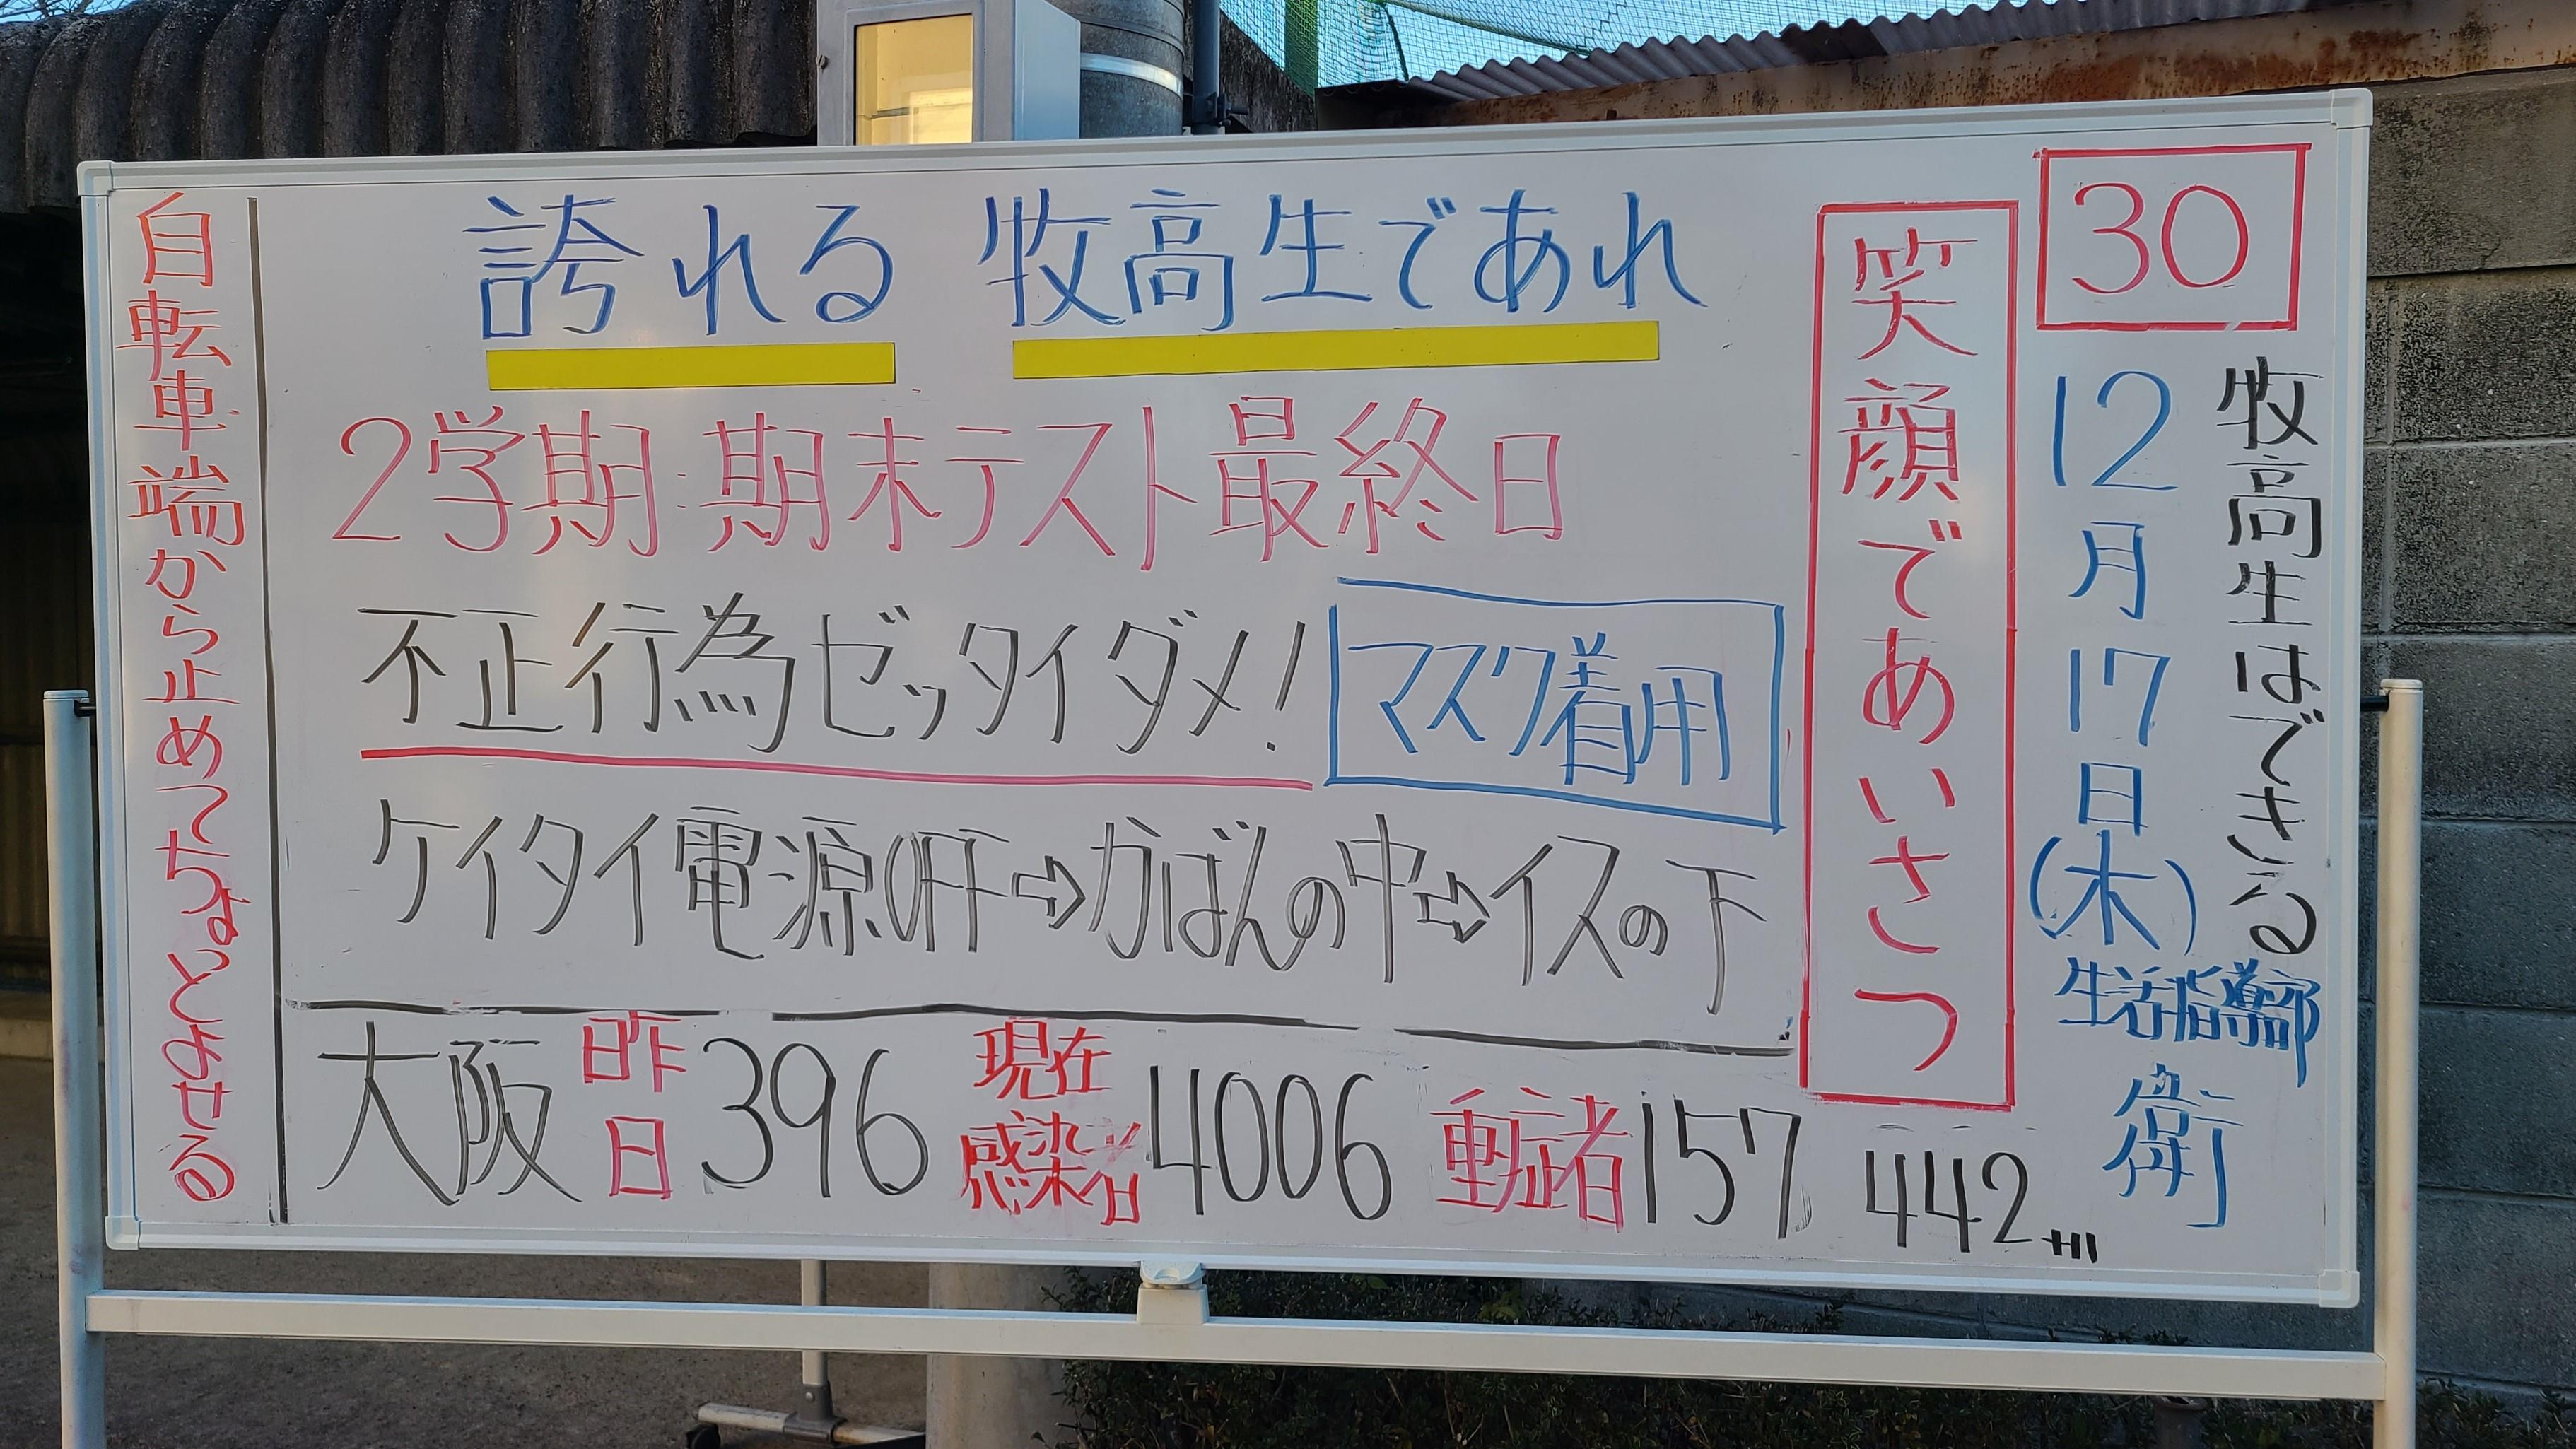 30
牧高生はできる
12月17日(木)
生活指導部
衛
笑顔であいさつ
誇れる 牧高生であれ
2学期 期末テスト最終日
不正行為ゼッタイダメ!
マスク着用
ケイタイ電源OFF⇨かばんの中⇨イスの下
大阪 昨日 396 現在感染者 4006 重症者 157
442
自転車端から止めてちょっとよせる